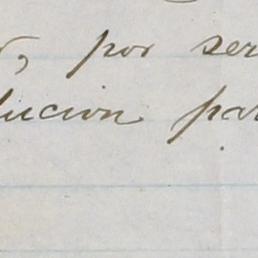 , por ser
lucion par